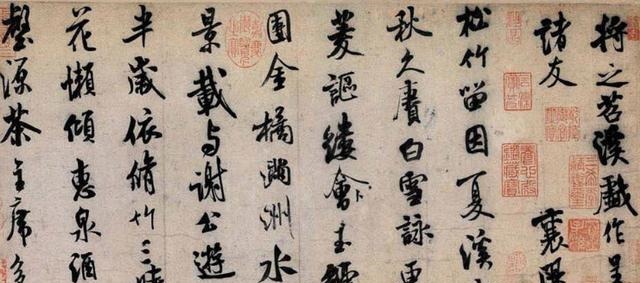 將之苕溪戲作呈
諸友
襄陽
松竹留因夏溪
秋久賡白雪詠更
菱謳縷會玉鱸
團金橘滿洲水
景載与謝公遊
半歲依脩竹三時
花懶傾惠泉酒
壑源茶主席多